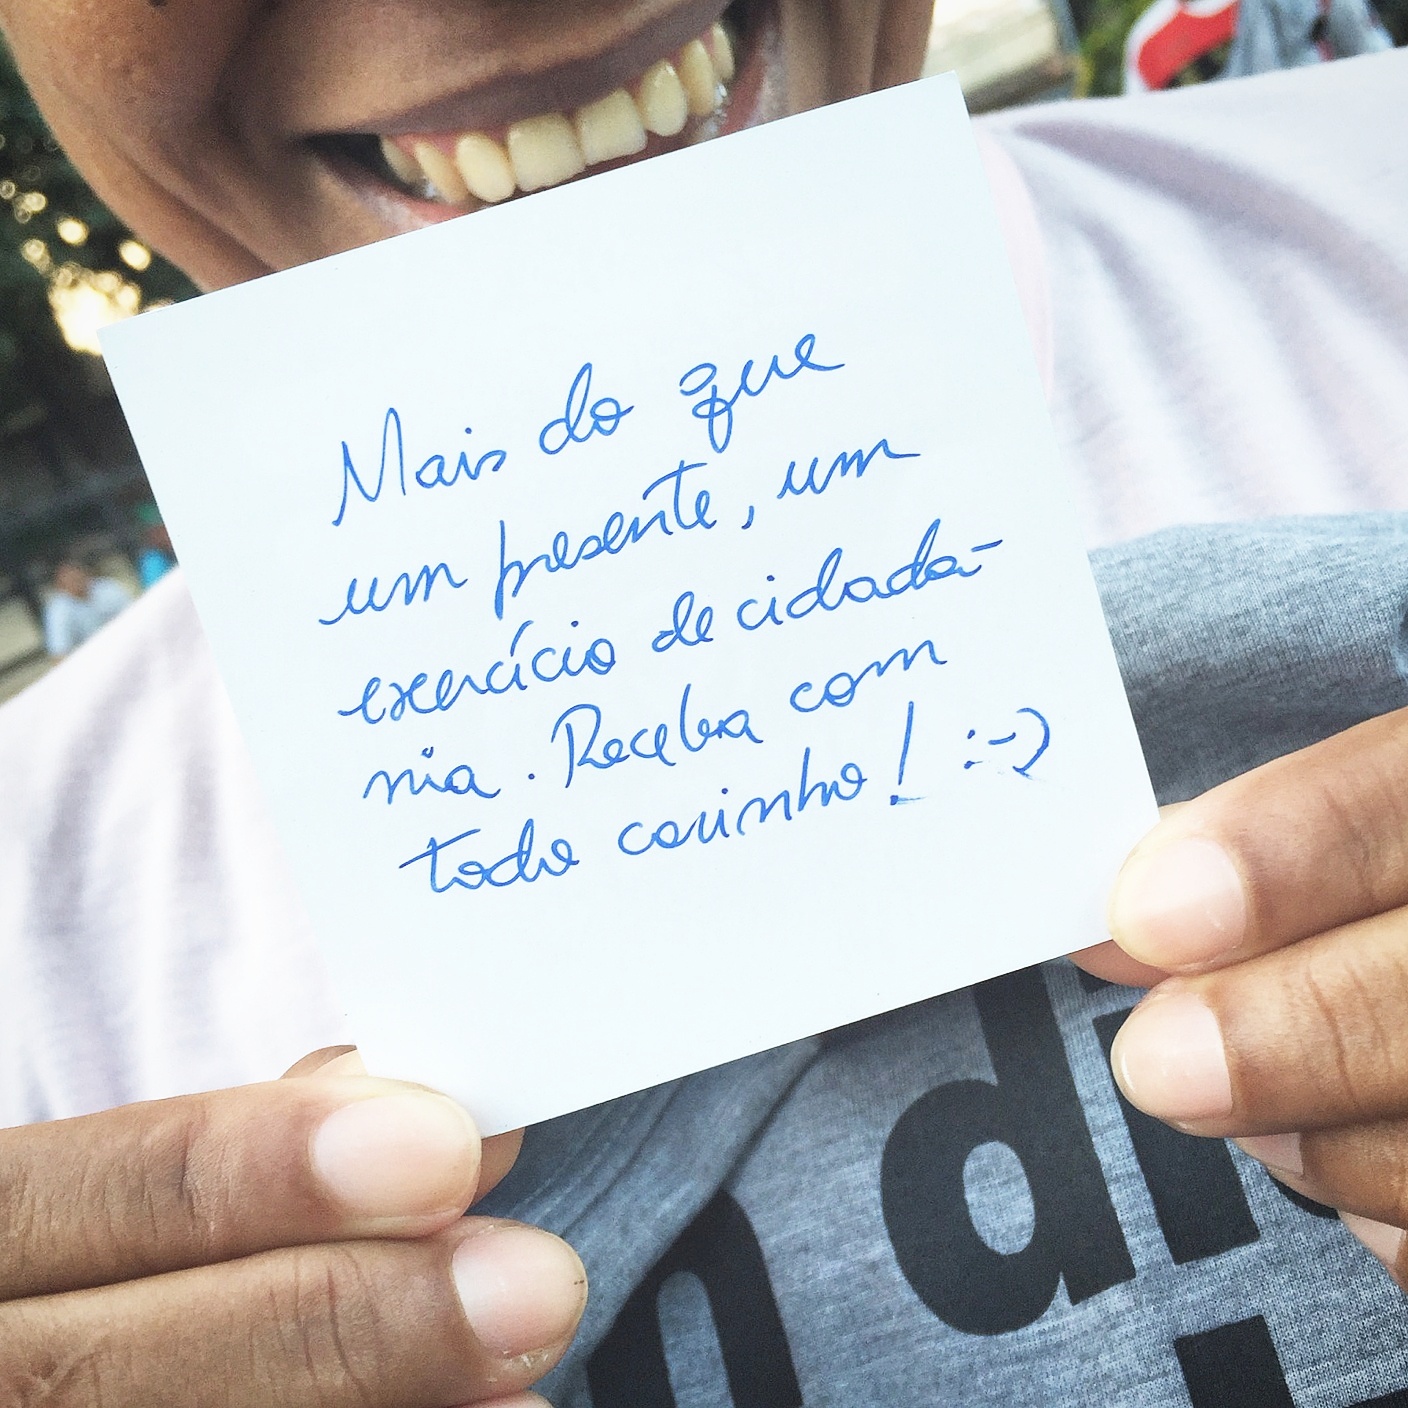 Mais do que
um presente, um
exercício de cidada-
nia. Receba com
todo carinho! :-)
di